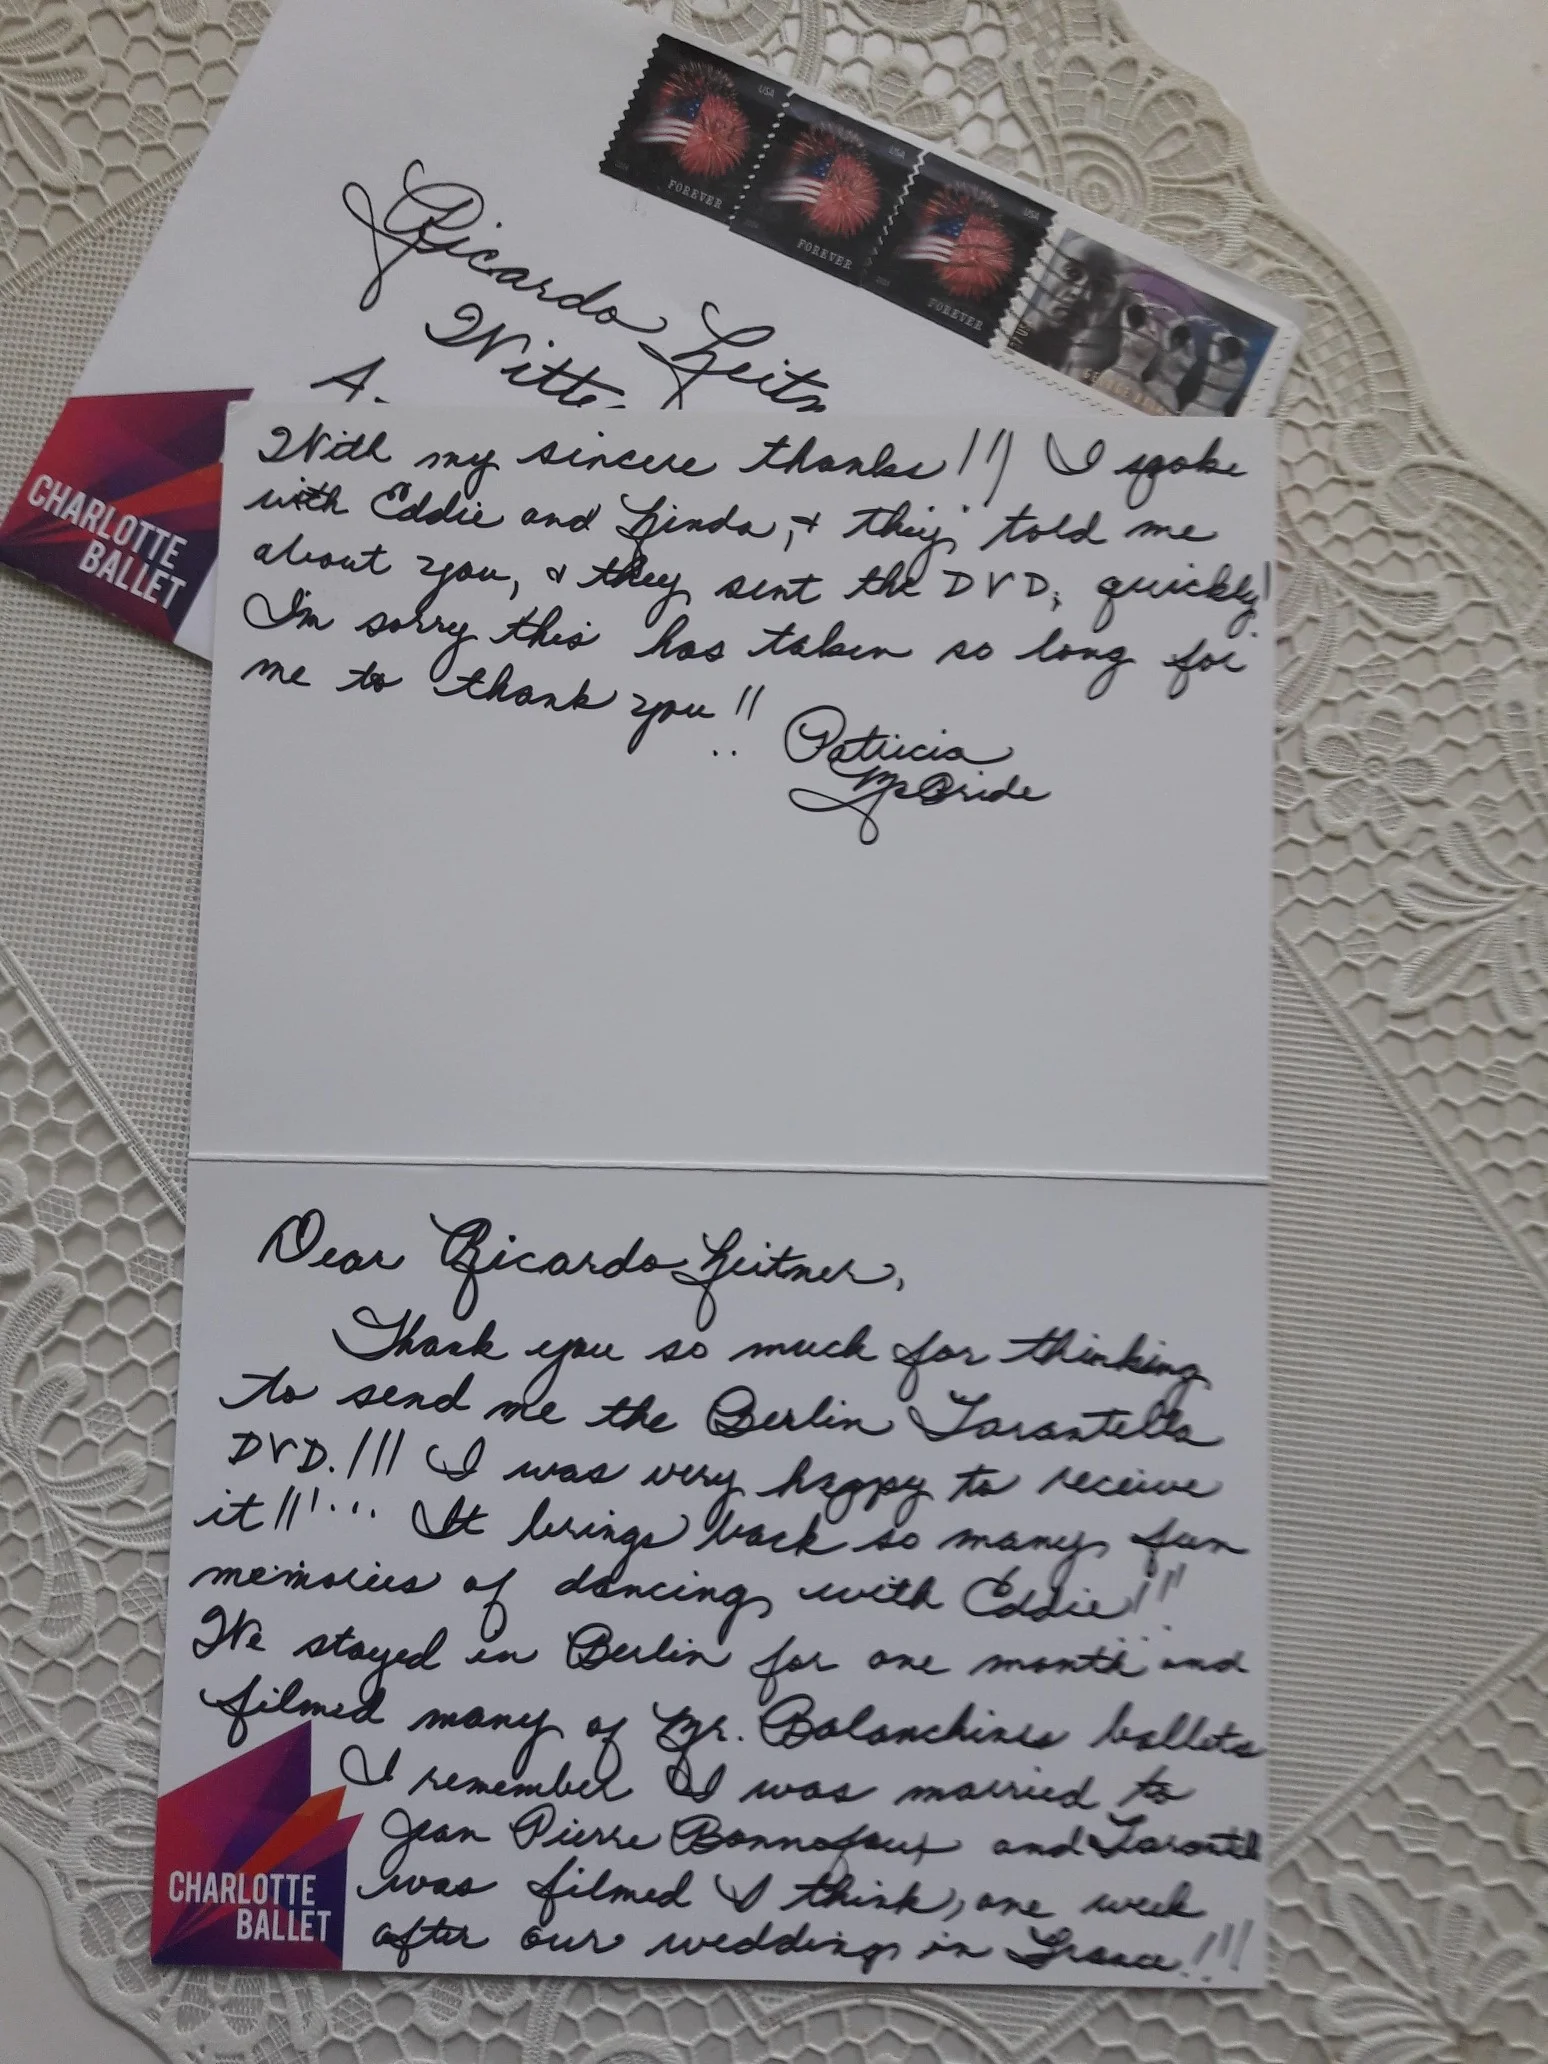 USA
FOREVER
USA
FOREVER
USA
FOREVER
Ricardo Leitn
Witte
A.
CHARLOTTE
BALLET
With my sincere thanks!!! I spoke
with Eddie and Linda, & they told me
about you, & they sent the DVD, quickly!
I'm sorry this has taken so long for
me to thank you!!
Patricia
McBride
Dear Ricardo Leitner,
Thank you so much for thinking
to send me the Berlin Tarantella
DVD.!!! I was very happy to receive
it!!!... It brings back so many fun
memories of dancing with Eddie!!!
We stayed in Berlin for one month and
filmed many of Mr. Balanchines ballets
I remember I was married to
Jean Pierre Bonnefoux and Tarantella
was filmed I think, one week
after our wedding in France!!!
CHARLOTTE
BALLET